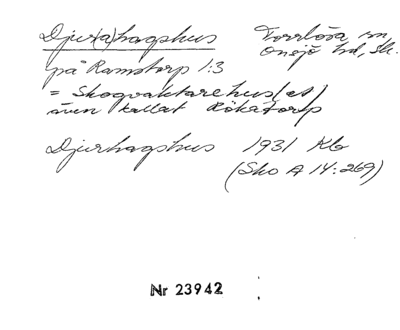 Djur(a)hagshus Torrlösa sn,
Onsjö hd, Sk.
på Ramstorp 1:3
= Skogvaktarehus(et)
även kallat Rökatorp
Djurhagshus 1931 Kb
(Sko A 14:269)
Nr 23942